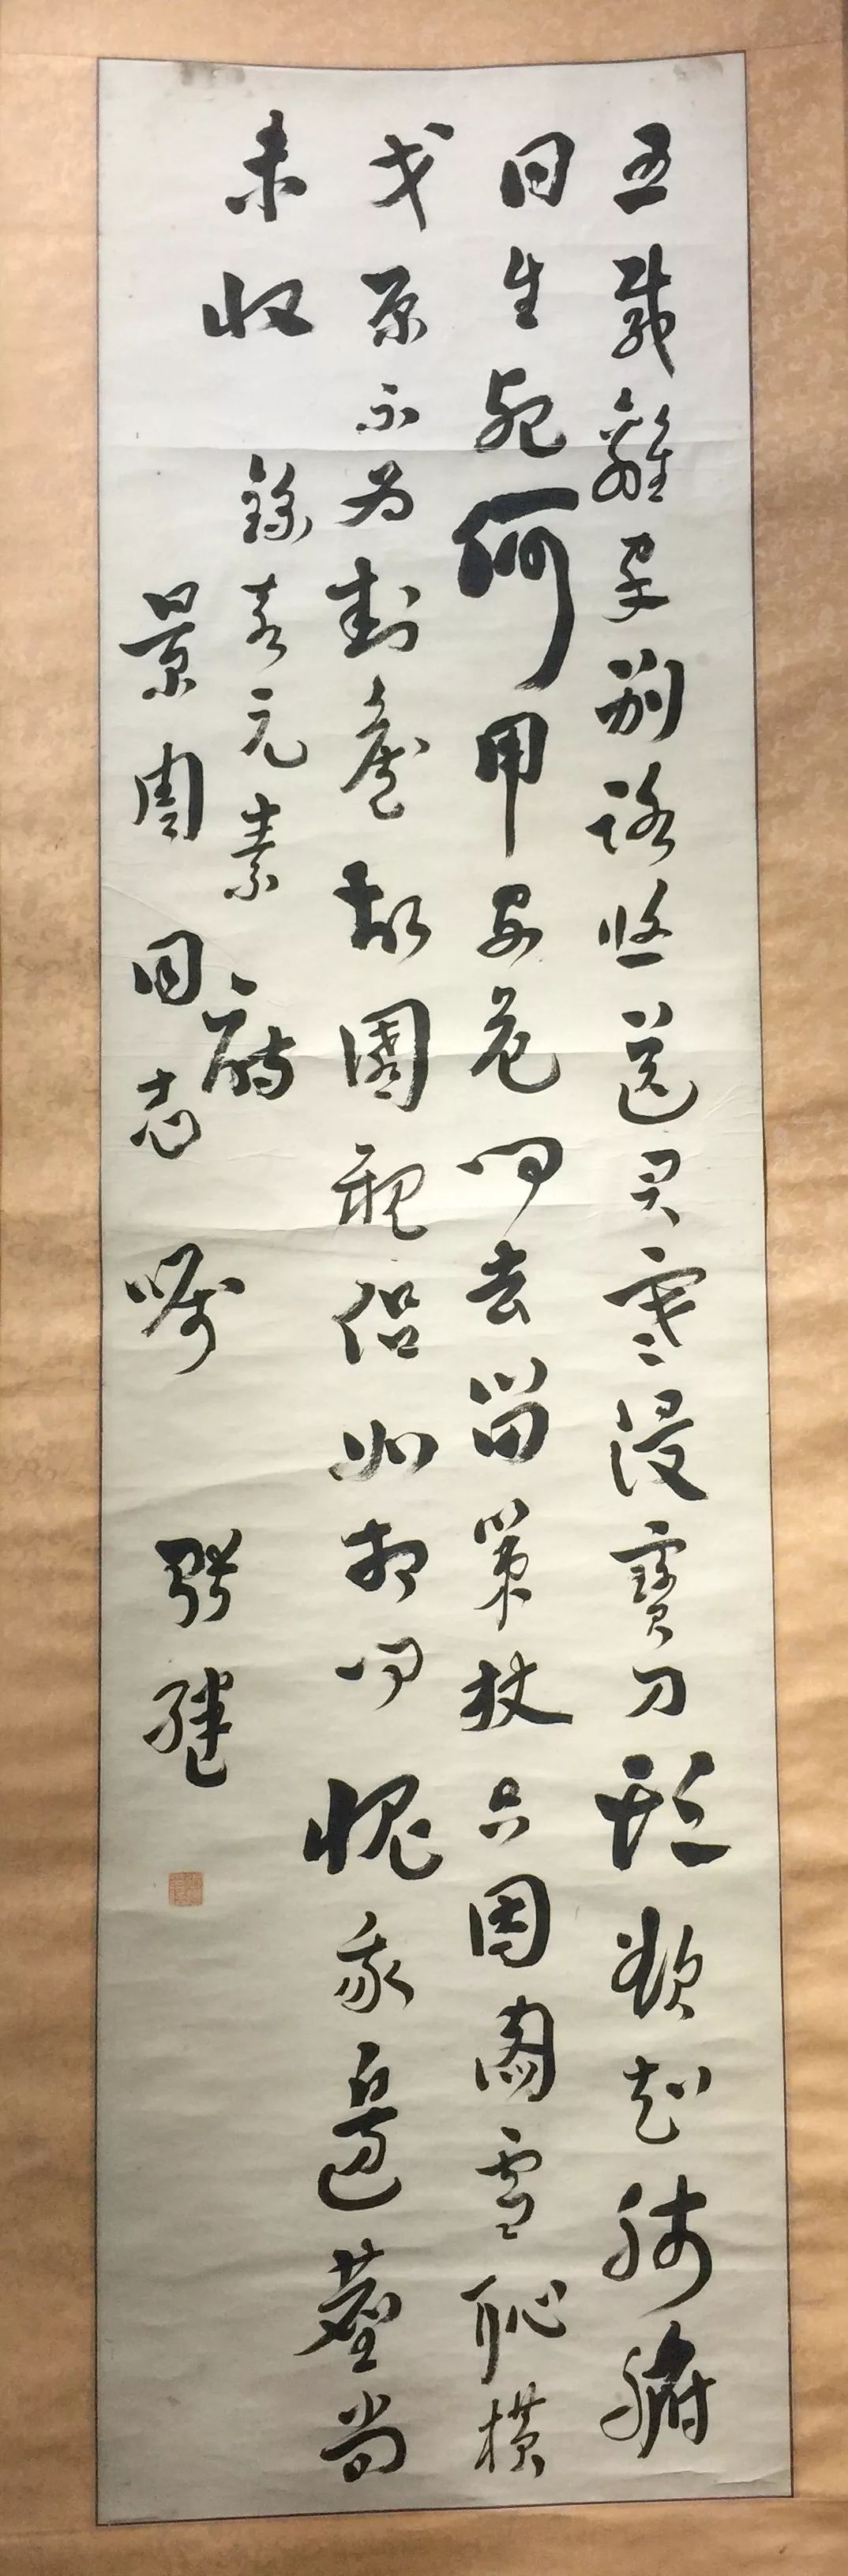 五載離家別路悠送君寒浸寶刀頭欲知肺腑
同生死何用安危問去留策杖只因圖雪恥橫
戈原不为封矦故園親侣如相問愧我邊塵尚
未收 錄袁元素詩
景周同志嘱 張繼